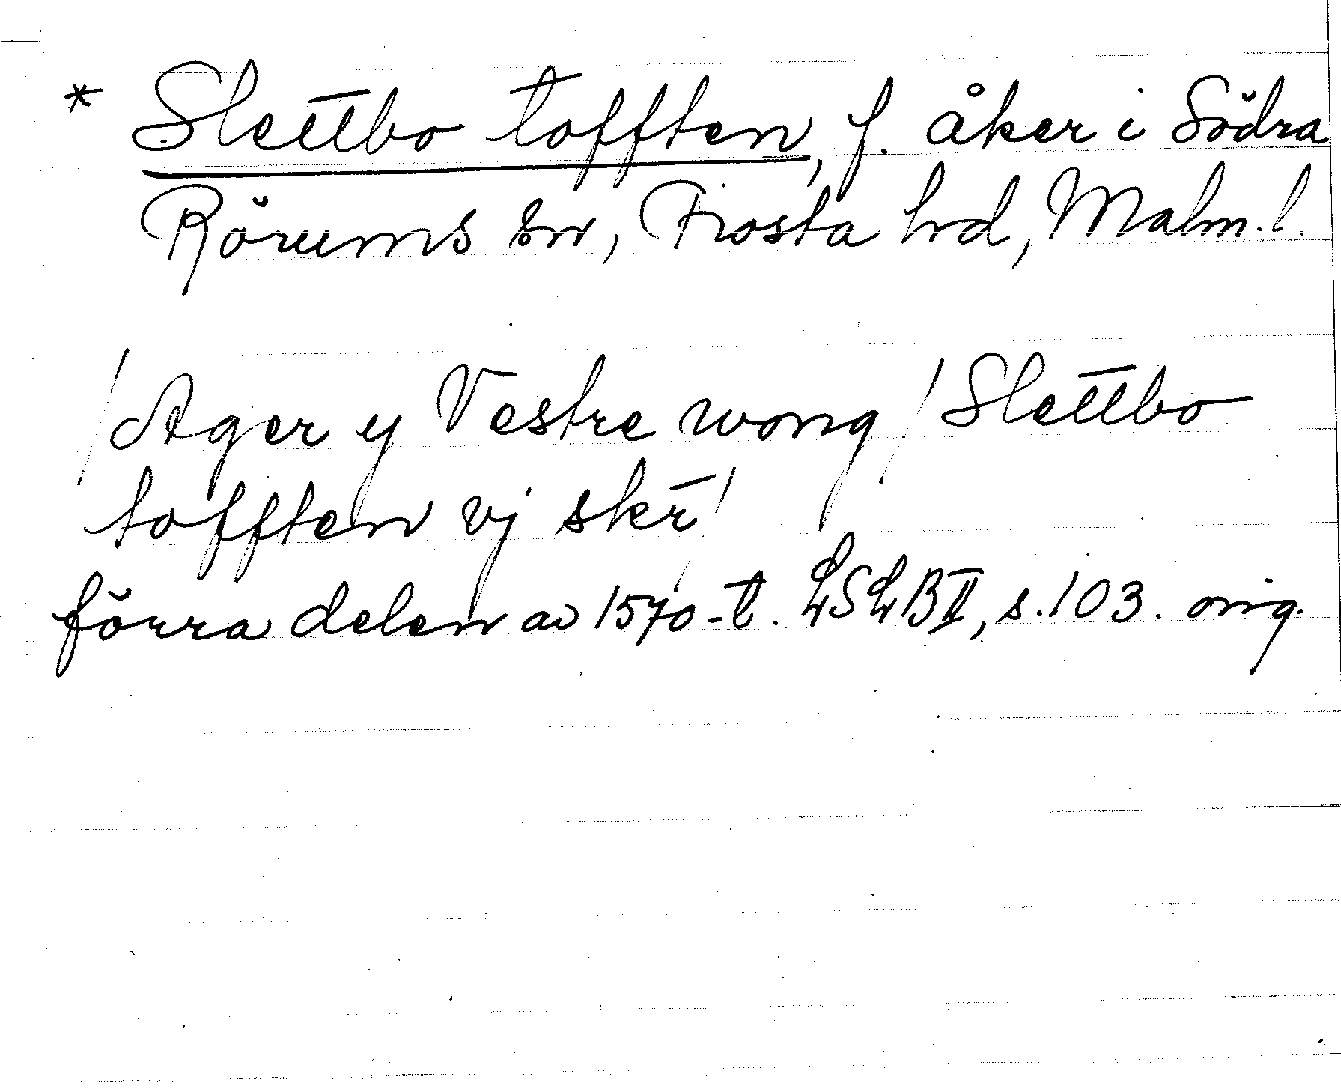 * Slettbo tofften, f. åker i Södra
Rörums sn, Frosta hd, Malm. l.
/Ager y Vestre wong/ Slettbo
tofften vj skr̄/
förra delen av 1570-t. LSLB II, s. 103. orig.